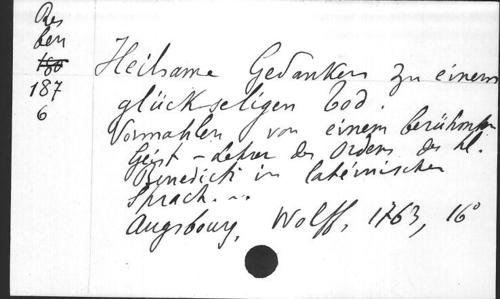 Res
ben
180
187
6
Heilsame Gedanken zu einem
glückseligen Tod.
Vormahlen von einem berühmten
Geist-Lehrer des Ordens des hl.
Benedicti in lateinischer
Sprach...
Augsbourg, Wolff, 1763, 16°